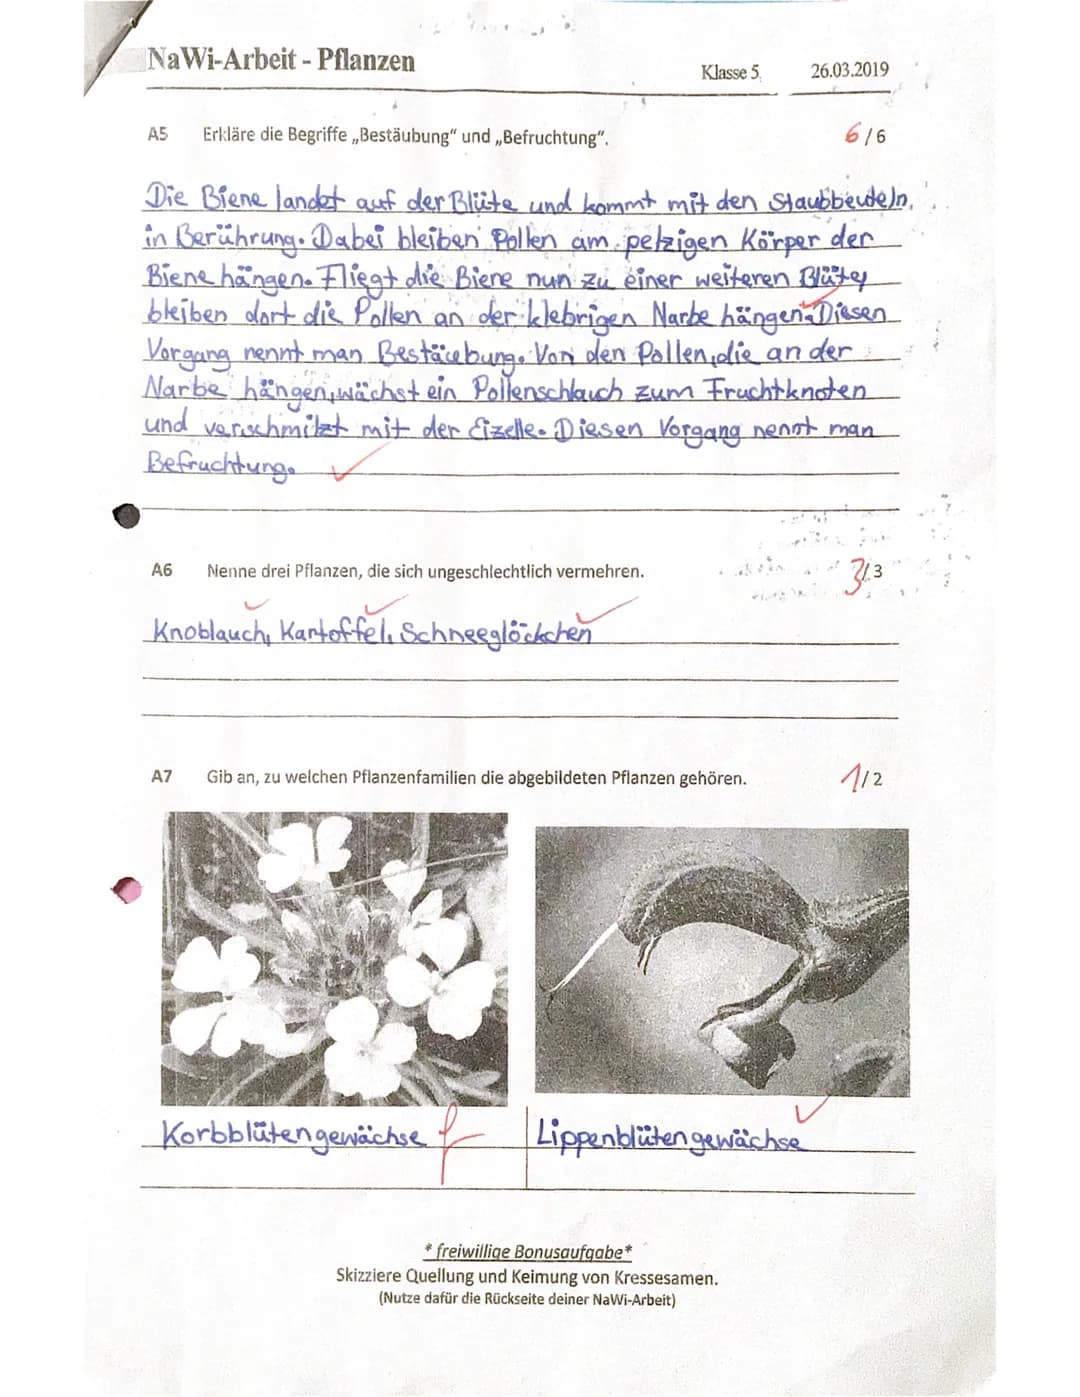 NaWi-Arbeit - Pflanzen
Klasse 5, 26.03.2019
A5 Erkläre die Begriffe „Bestäubung" und „Befruchtung". 6/6
Die Biene landet auf der Blüte und kommt mit den Staubbeuteln
in Berührung. Dabei bleiben Pollen am pelzigen Körper der
Biene hängen. Fliegt die Biene nun zu einer weiteren Blüte,
bleiben dort die Pollen an der klebrigen Narbe hängen. Diesen
Vorgang nennt man Bestäubung. Von den Pollen, die an der
Narbe hängen, wächst ein Pollenschlauch zum Fruchtknoten
und verschmilzt mit der Eizelle. Diesen Vorgang nennt man
Befruchtung.
A6 Nenne drei Pflanzen, die sich ungeschlechtlich vermehren. 3/3
Knoblauch, Kartoffel, Schneeglöckchen
A7 Gib an, zu welchen Pflanzenfamilien die abgebildeten Pflanzen gehören. 1/2
Korbblütengewächse f Lippenblütengewächse
* freiwillige Bonusaufgabe*
Skizziere Quellung und Keimung von Kressesamen.
(Nutze dafür die Rückseite deiner NaWi-Arbeit)